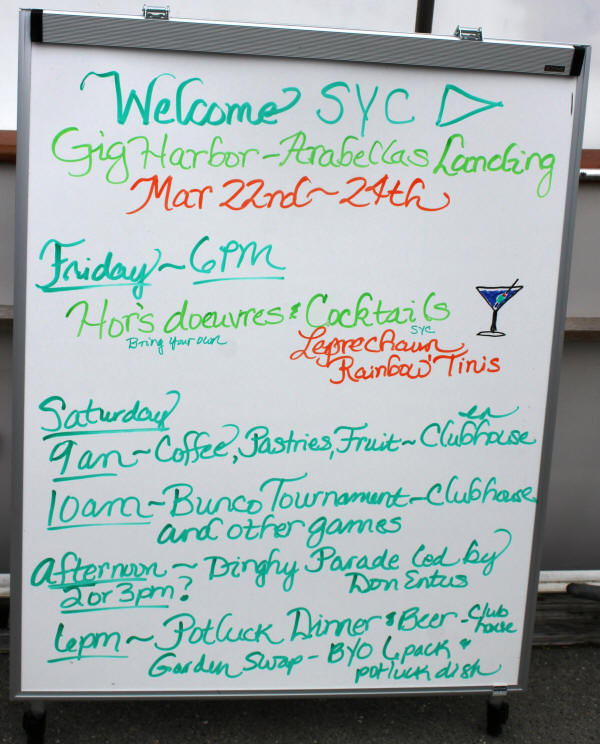 Welcome SYC
Gig Harbor - Arabellas Landing
Mar 22nd ~ 24th
Friday ~ 6PM
Hor's doeuvres & Cocktails
Bring Your own
SYC
Leprechaun
Rainbow' Tinis
Saturday
9am ~ Coffee, Pastries, Fruit ~ Clubhouse
10am ~ Bunco Tournament - Clubhouse
and other games
Afternoon ~ Dinghy Parade led by
2 or 3pm? Don Entus
6pm ~ Potluck Dinner & Beer - Club
house
Garden Swap - BYO 6pack &
potluck dish